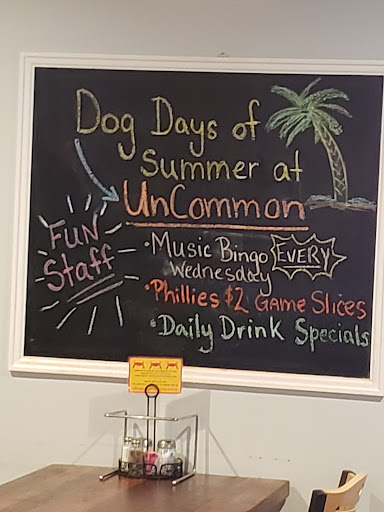 Dog Days of
Summer at
UnCommon
FUN
Staff
• Music Bingo EVERY
Wednesday
• Phillies $2 Game Slices
• Daily Drink Specials